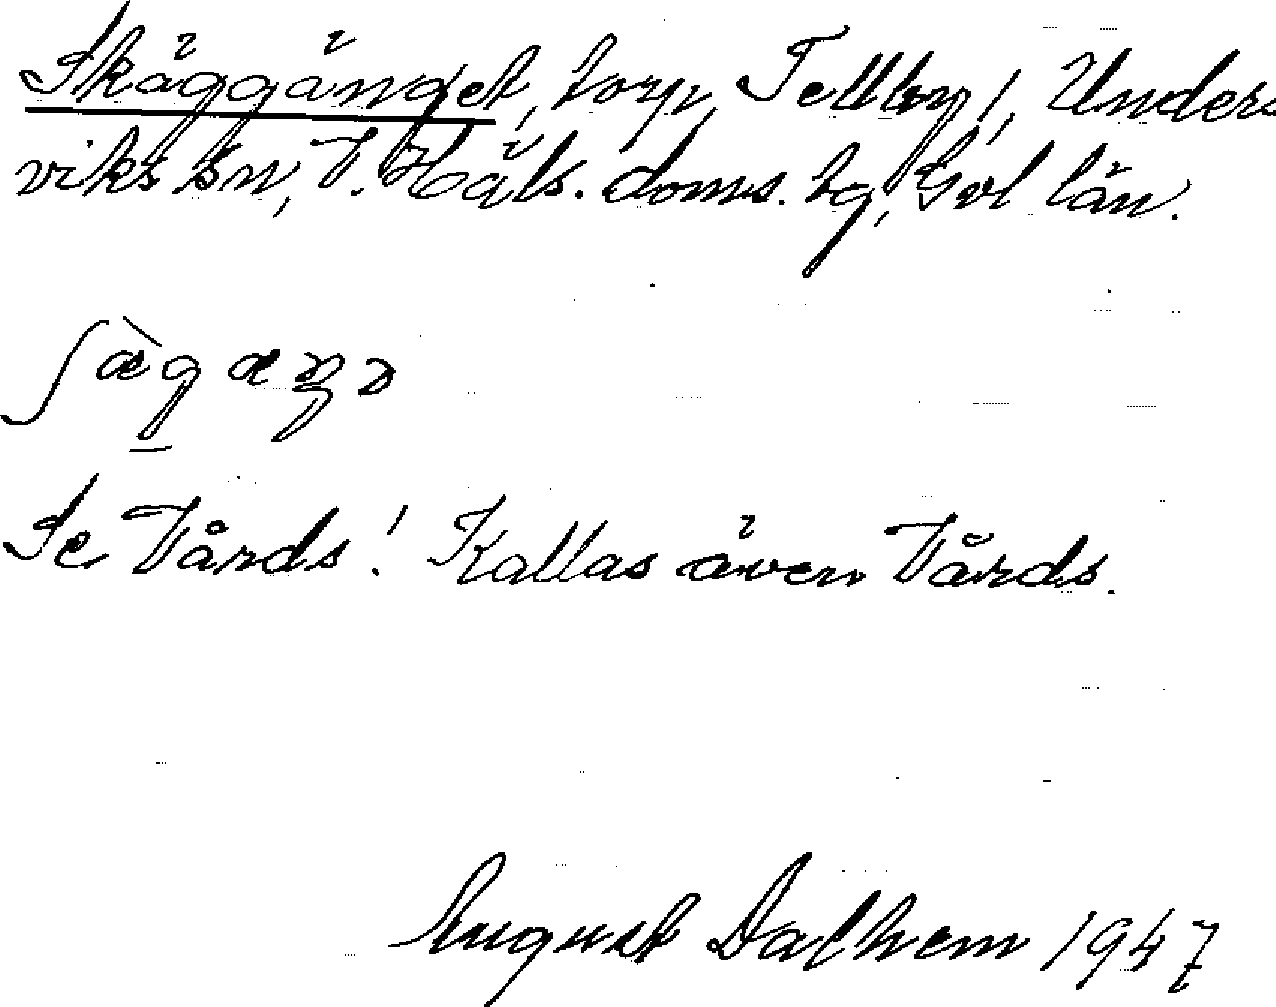 Skäggänget, torp, Tellby 1, Unders
viks sn, V. Häls. doms. tg, Gvl län.
Se Vårds! Kallas även Vårds.
August Dalhem 1947